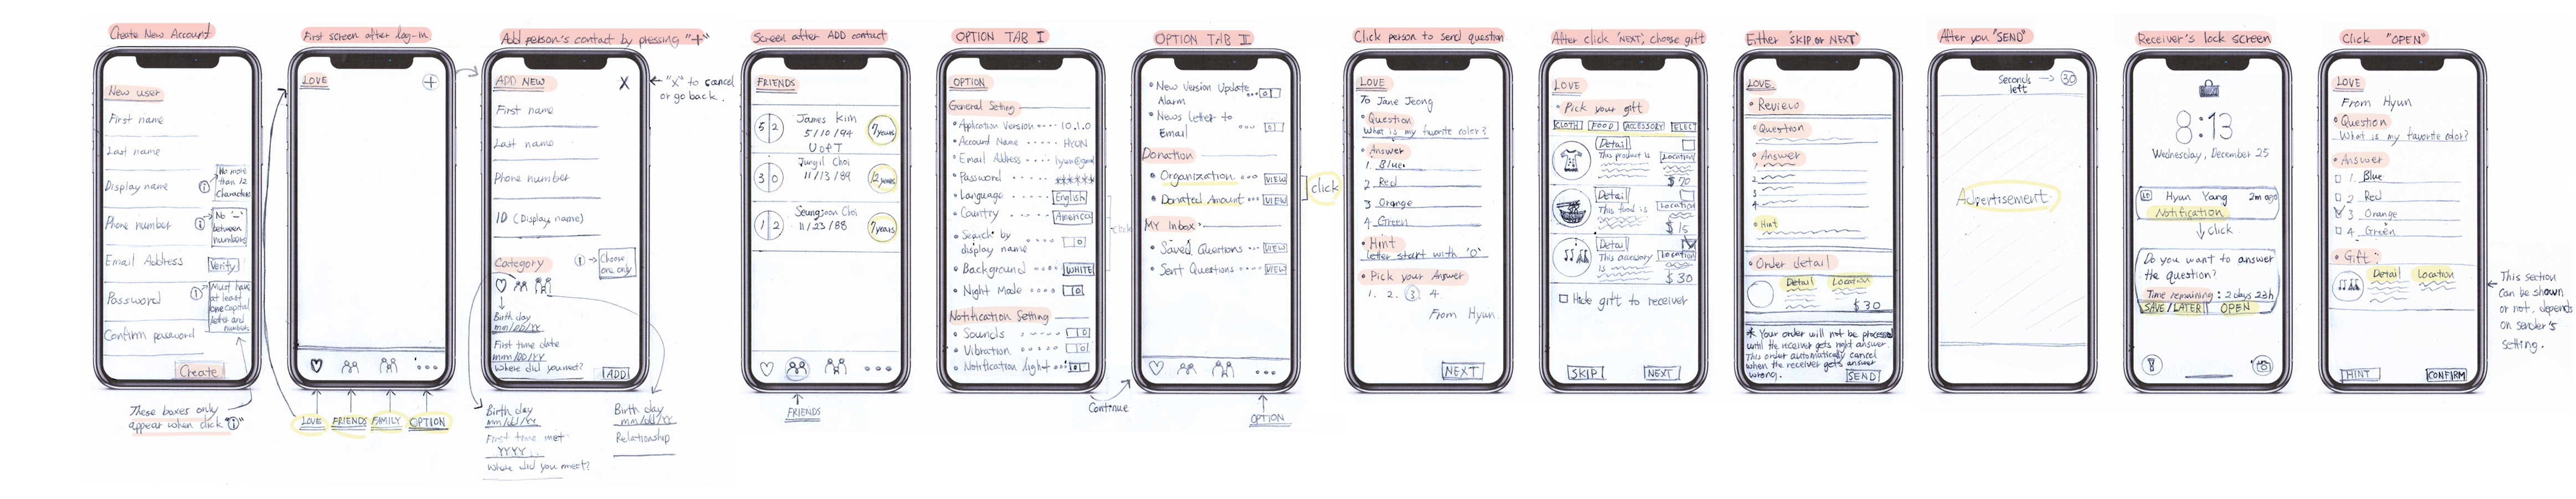 Create New Account
New user
First name
Last name
Display name
No more
than 12
Characters
Phone number
No "-"
between
numbers
Email Address
Verify
Password
Must have
at least
one capital
letter and
numbers
Confirm password
Create
These boxes only
appear when click "i"
First screen after log-in
LOVE
+
LOVE
FRIENDS
FAMILY
OPTION
Add person's contact by pressing "+"
ADD NEW
X
First name
Last name
Phone number
ID (Display name)
Category
i
Choose
one only
Birth day
mm/dd/YY
First time date
mm/DD/YY
Where did you meet?
ADD
"X" to cancel
or go back.
Birth day
mm/dd/YY
First time met
YYYY
Where did you meet?
Birth day
mm/dd/YY
Relationship
Screen after ADD contact
FRIENDS
5 2
James Kim
5/10/94
U of T
7years
3 0
Jungil Choi
11/13/89
12years
1 2
Seungsoon Choi
11/23/88
7years
FRIENDS
OPTION TAB I
OPTION
General Setting
Application Version 10.1.0
Account Name HYUN
Email Address
Password *****
Language English
Country America
Search by
display name
Background WHITE
Night Mode
Notification Setting
Sounds
Vibration
Notification light
click
Continue
OPTION TAB II
New Version Update
Alarm
News letter to
Email
Donation
Organization VIEW
Donated Amount VIEW
MY Inbox
Saved Questions VIEW
Sent Questions VIEW
click
OPTION
Click person to send question
LOVE
To Jane Jeong
Question
What is my favorite color?
Answer
1. Blue
2 Red
3 Orange
4 Green
Hint
letter start with "O"
Pick your Answer
1. 2. 3 4
From Hyun
NEXT
After click 'NEXT', choose gift
LOVE
Pick your gift
CLOTH FOOD ACCESSORY ELEC
Detail
This product is
Location
$70
Detail
This food is
Location
$15
Detail
This accessory
is
Location
$30
Hide gift to receiver
SKIP NEXT
Either 'SKIP or NEXT'
LOVE.
Review
Question
Answer
2
3
4
Hint
Order detail
Detail Location
$30
* Your order will not be processed
until the receiver gets right answer.
This order automatically cancel
when the receiver gets answer
wrong.
SEND
After you "SEND"
Seconds → 30
left
Advertisement
Receiver's lock screen
8:13
Wednesday, December 25
Hyun Yang 2m ago
Notification
click
Do you want to answer
the question?
Time remaining : 2days 23h
SAVE/LATER OPEN
Click "OPEN"
LOVE
From Hyun
Question
What is my favorite color?
Answer
1. Blue
2 Red
3 Orange
4. Green
Gift
Detail Location
HINT CONFIRM
This section
can be shown
or not, depends
on sender's
setting.